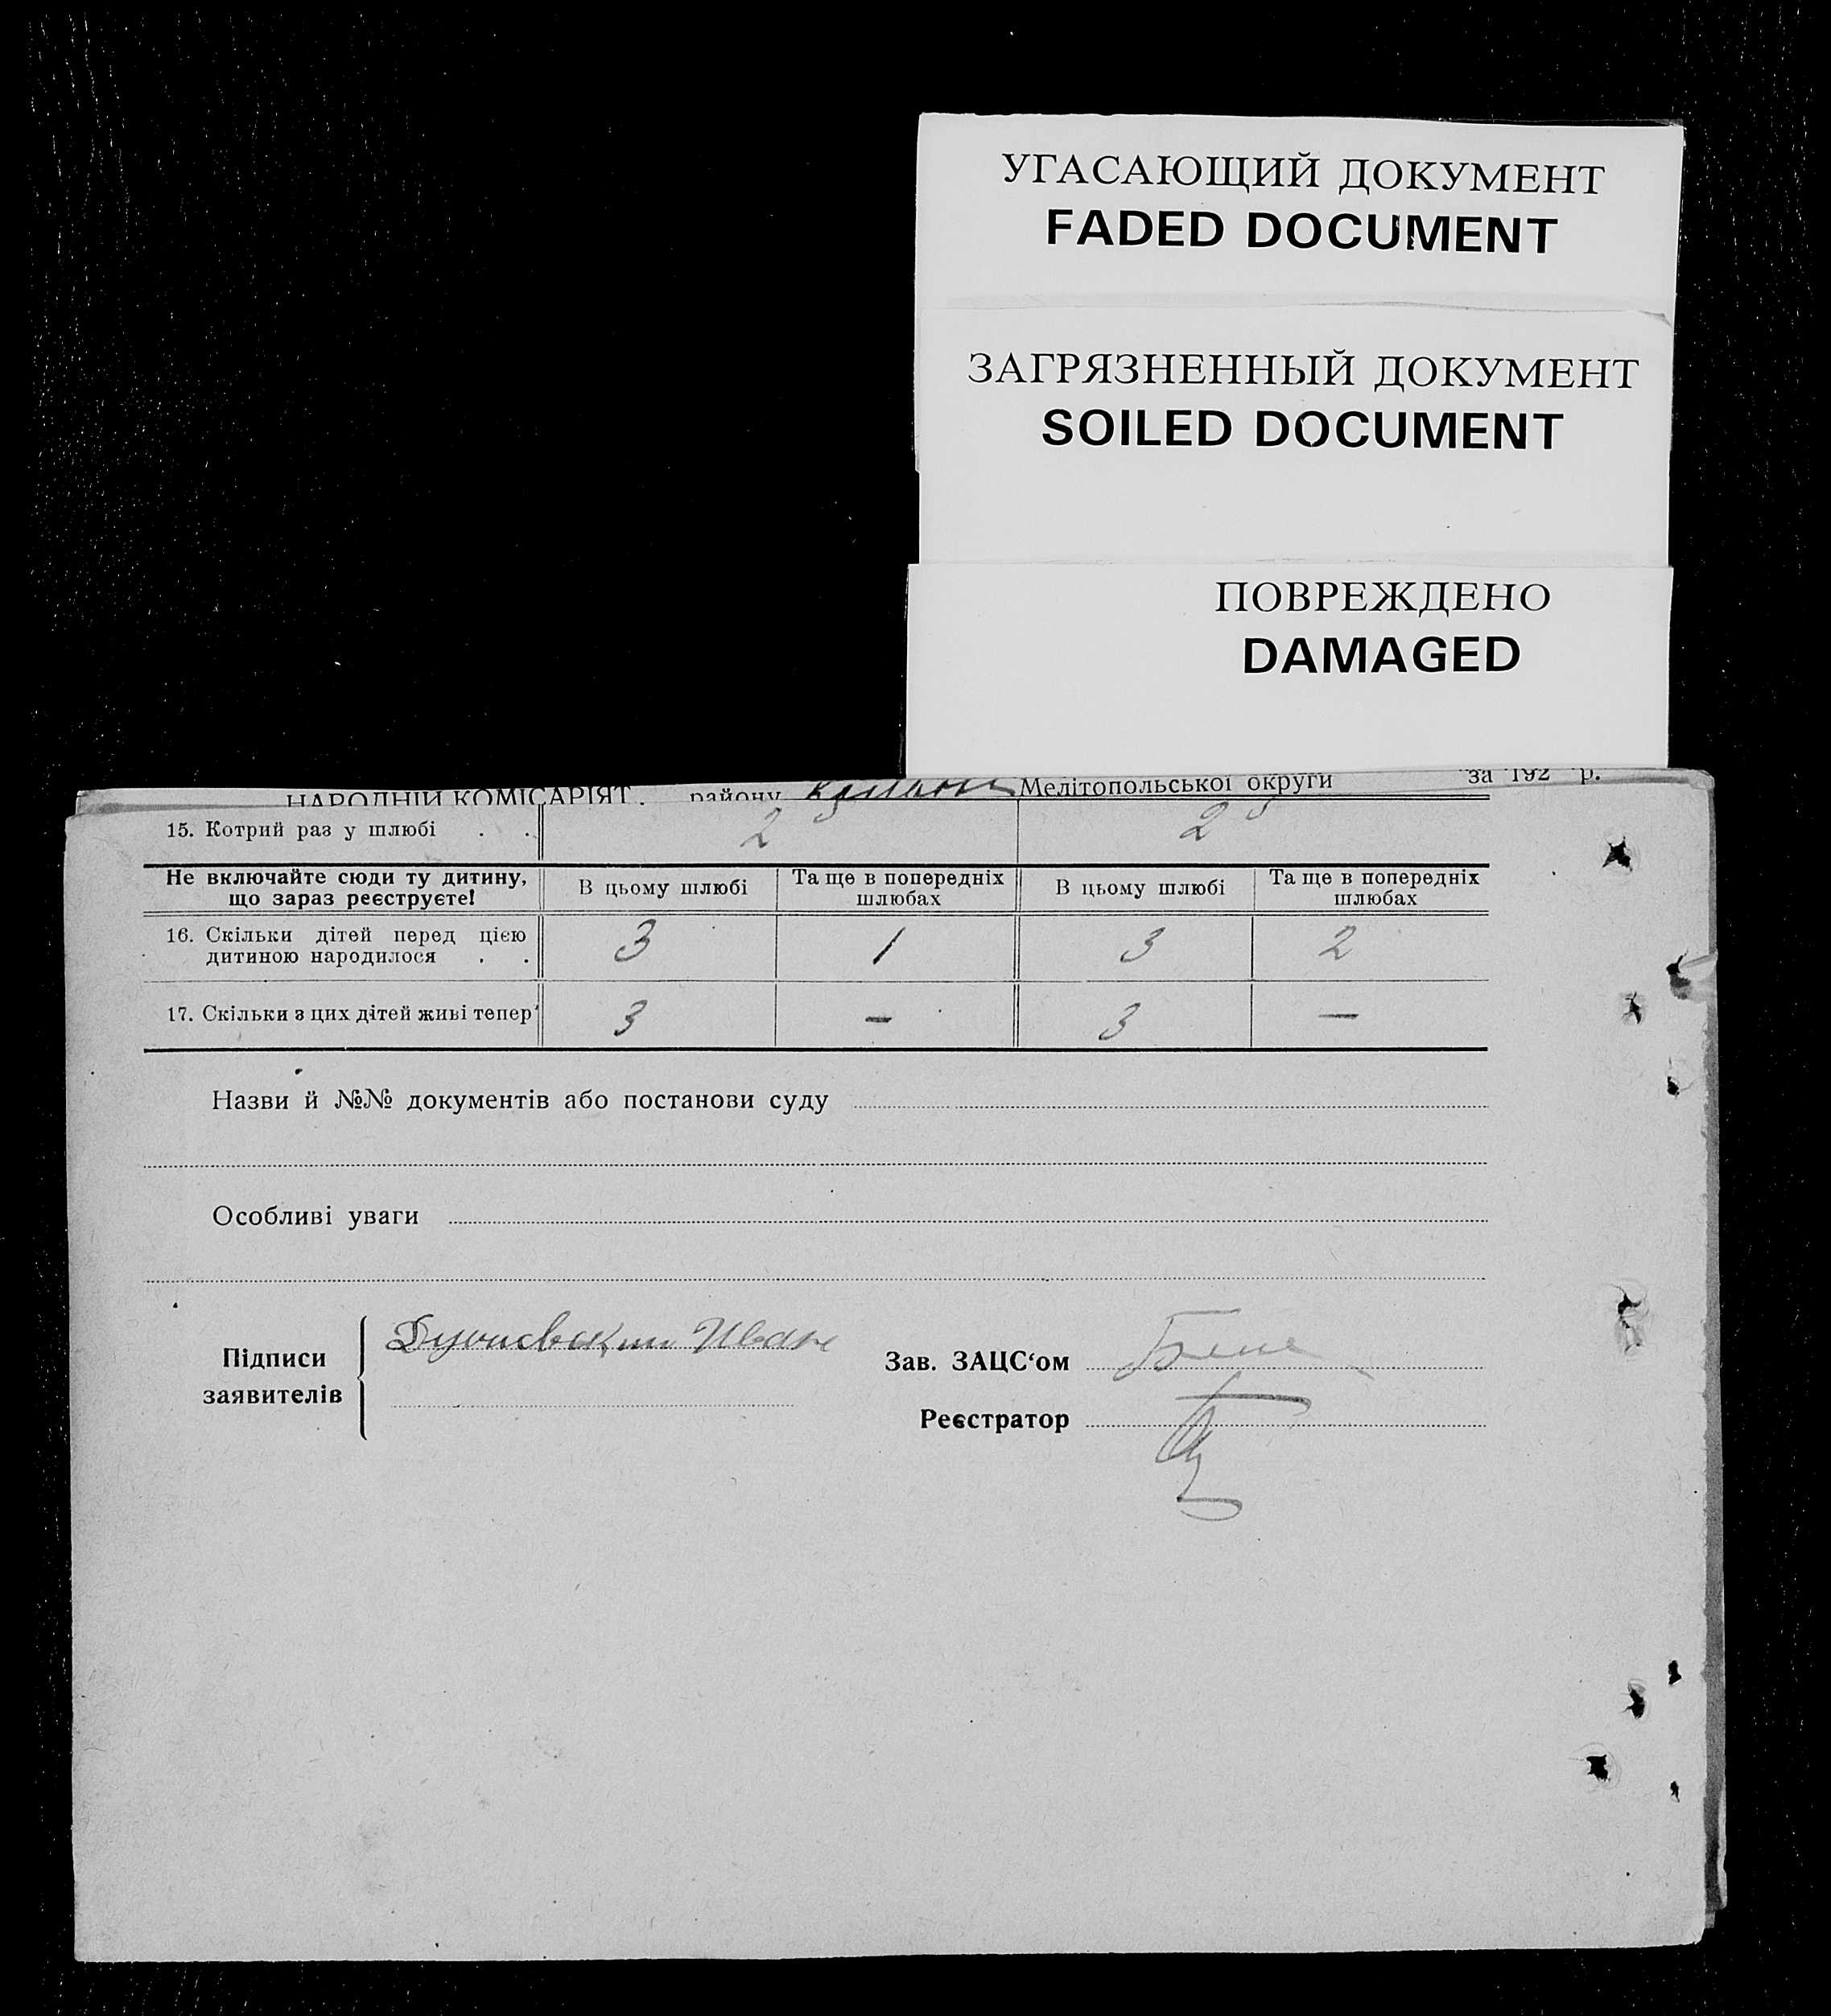 УГАСАЮЩИЙ ДОКУМЕНТ
FADED DOCUMENT
ЗАГРЯЗНЕННЫЙ ДОКУМЕНТ
SOILED DOCUMENT
ПОВРЕЖДЕНО
DAMAGED
НАРОДНІЙ КОМІСАРІЯТ. району Мелітопольської округи за 192 р.
15. Котрий раз у шлюбі . . 2 2
Не включайте сюди ту дитину, що зараз реєструєте! В цьому шлюбі Та ще в попередніх шлюбах В цьому шлюбі Та ще в попередніх шлюбах
16. Скільки дітей перед цією
дитиною народилося . . 3 1 3 2
17. Скільки з цих дітей живі тепер 3 — 3 —
Назви й №№ документів або постанови суду
Особливі уваги
Підписи заявителів Иван
Зав. ЗАЦС‘ом
Реєстратор